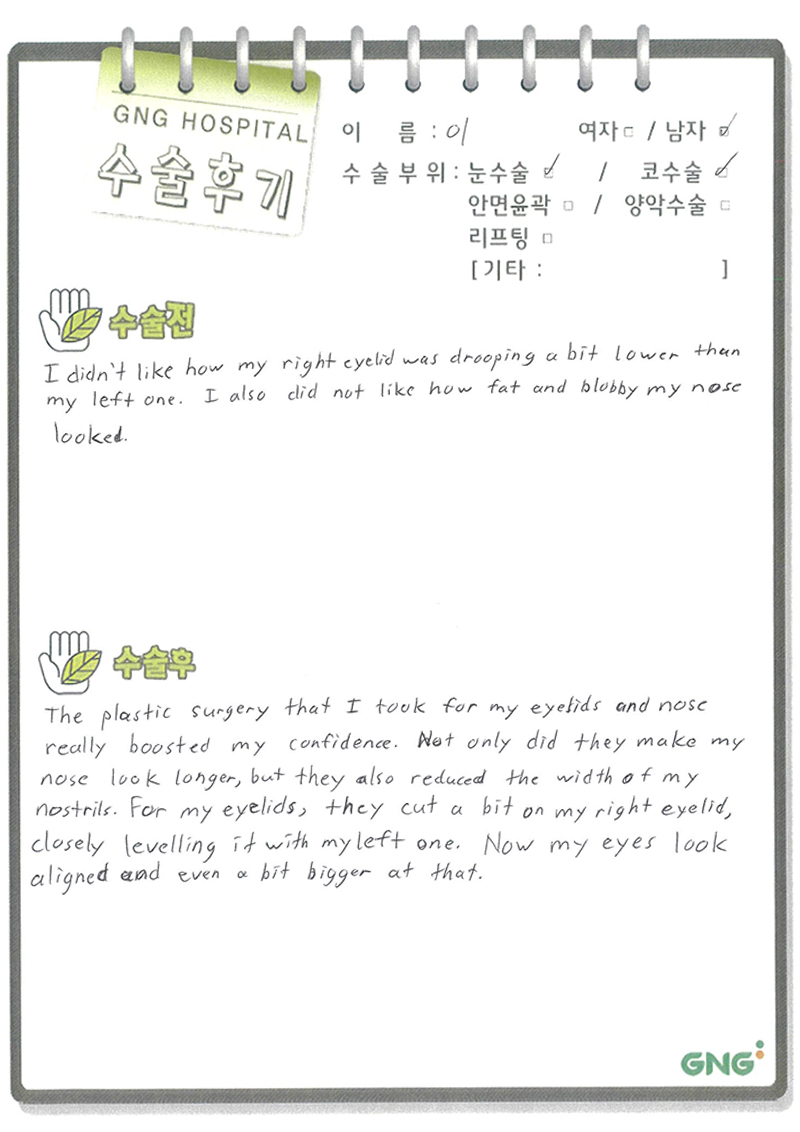 GNG HOSPITAL
수술후기
이 름 : 이 여자□ / 남자☑
수술부위 : 눈수술 ☑ / 코수술 ☑
안면윤곽 □ / 양악수술 □
리프팅 □
[기타 : ]
수술전
I didn't like how my right eyelid was drooping a bit lower than
my left one. I also did not like how fat and blobby my nose
looked.
수술후
The plastic surgery that I took for my eyelids and nose
really boosted my confidence. Not only did they make my
nose look longer, but they also reduced the width of my
nostrils. For my eyelids, they cut a bit on my right eyelid,
closely levelling it with my left one. Now my eyes look
aligned and even a bit bigger at that.
GNG